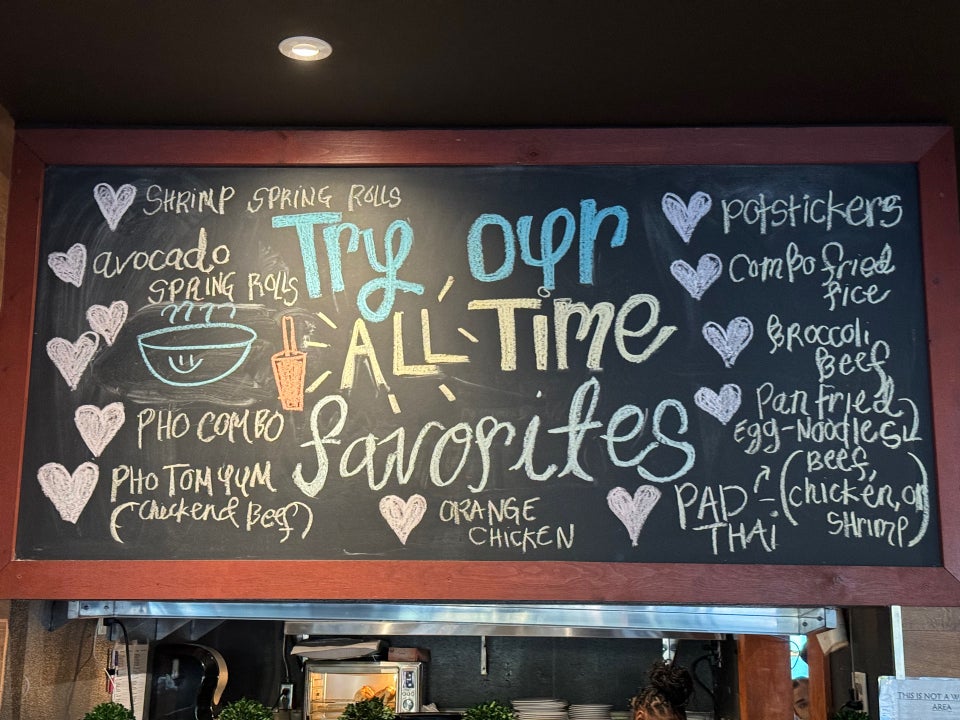 Try our
ALL Time
favorites
SHRIMP SPRING ROLLS
avocado
SPRING ROLLS
PHO COMBO
PHO TOM YUM
(checkend Beef)
ORANGE
CHICKEN
Potstickers
Combo fried
rice
Broccoli
Beef
Pan fried
Egg-Noodles
PAD
THAI
(Beef,
chicken, or
shrimp)
THIS IS NOT A
AREA